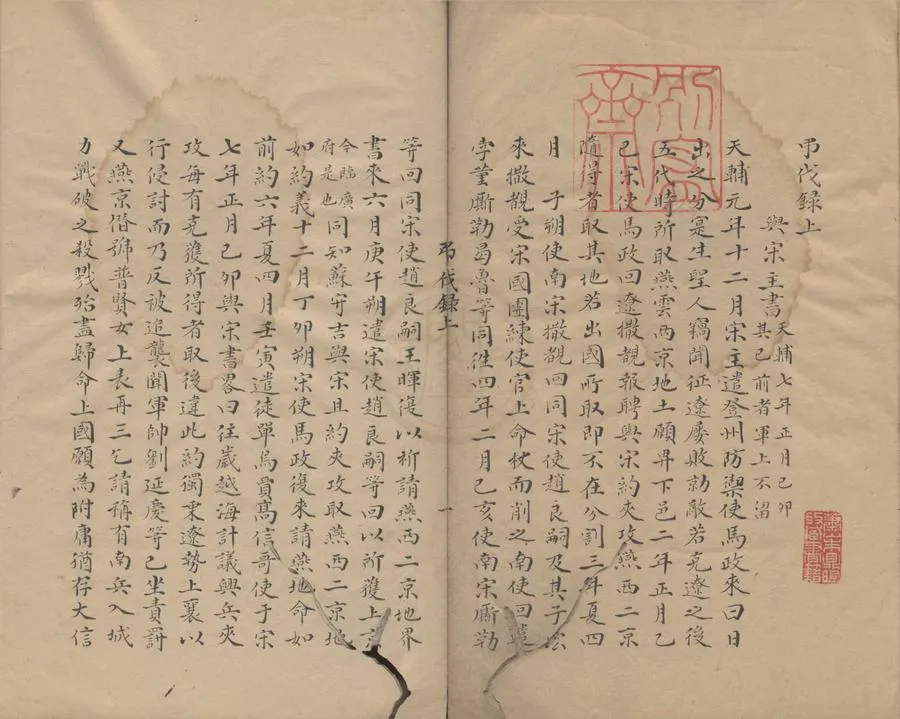 弔伐錄上
與宋主書 天輔七年正月己卯
其已前者軍上不留
天輔元年十二月宋主遣登州防禦使馬政來曰日
出之分寔生聖人竊聞征遼屢敗勍敵若克遼之後
五代時所取燕雲兩京地土願畀下邑二年正月乙
巳宋使馬政回遼撒覩報聘與宋約夾攻燕西二京
隨得者取其地若出國所取即不在分割三年夏四
月 子朔使南宋撒覩回同宋使趙良嗣及其子
來撒覩受宋國團練使官上命杖而削之南使回
孛菫廝勒曷魯等同徃四年二月己亥使南宋廝勒
弔伐錄上 一
等回同宋使趙良嗣王暉復以祈請燕西二京地界
書來六月庚午朔遣宋使趙良嗣等回以所獲上京
今臨廣
府是也
同知蘇守吉與宋且約夾攻取燕西二京地
如約義十二月丁卯朔宋使馬政復來請燕地命如
前約六年夏四月壬寅遣徒單烏賁髙信哥使于宋
七年正月己卯與宋書畧曰往嵗越海計議興兵夾
攻每有克獲所得者取後違此約獨秉遼勢上襄以
行侵討而乃反被追襲聞軍帥劉延慶等已坐責罸
又燕京僭號普賢女上表再三乞請稱有南兵入城
力戰破之殺戮殆盡歸命上國願為附庸猶存大信